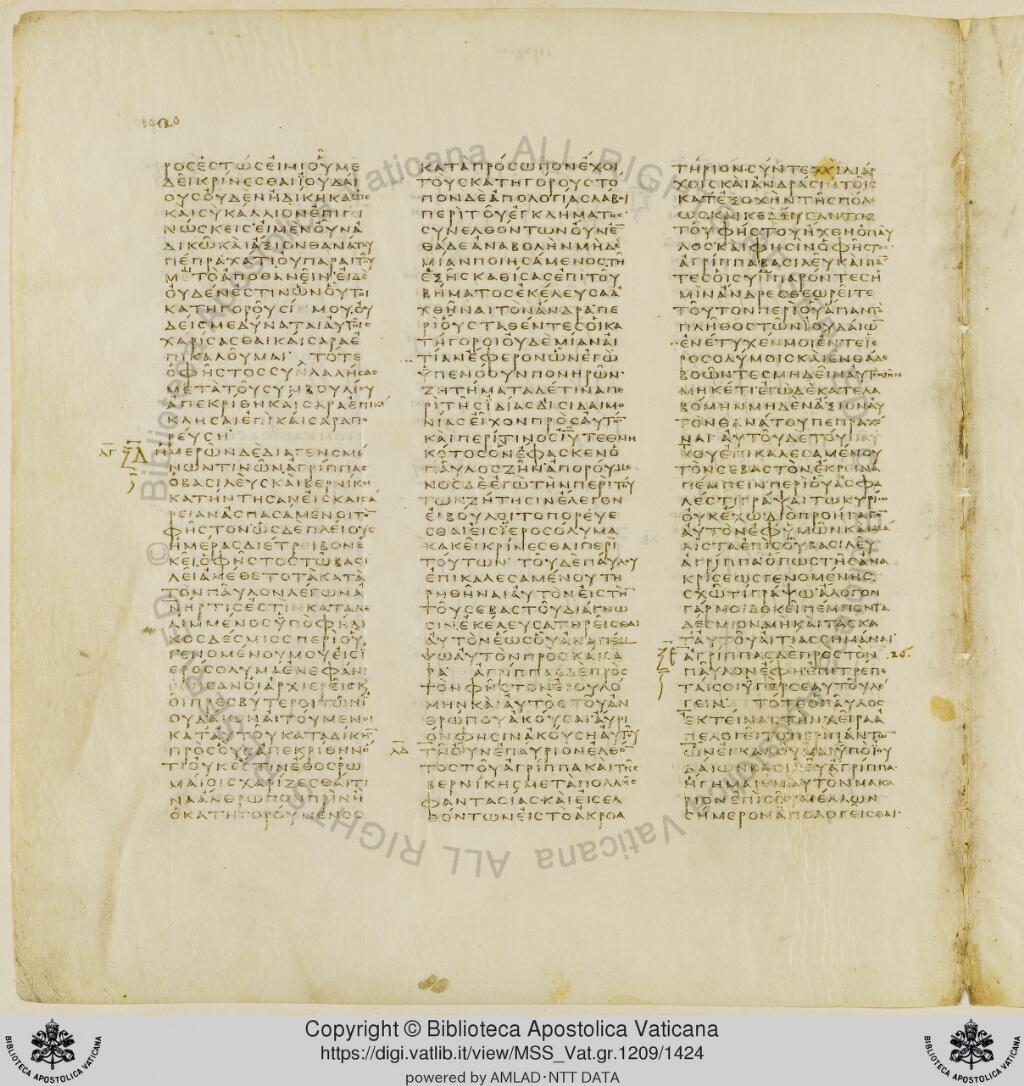 ΡΟϹΕϹΤΩϹΕΙΜΙΟΥΜΕ
ΔΕΙΚΡΙΝΕϹΘΑΙΙΟΥΔΑΙ
ΟΥϹΟΥΔΕΝΗΔΙΚΗΚΑΩϹ
ΚΑΙϹΥΚΑΛΛΙΟΝΕΠΙΓΙ
ΝΩϹΚΕΙϹΕΙΜΕΝΟΥΝΑ
ΔΙΚΩΚΑΙΑΞΙΟΝΘΑΝΑΤΟΥ
ΠΕΠΡΑΧΑΤΙΟΥΠΑΡΑΙΤΟΥ
ΜΑΙΤΟΑΠΟΘΑΝΕΙΝΕΙΔΕ
ΟΥΔΕΝΕϹΤΙΝΩΝΟΥΤΟΙ
ΚΑΤΗΓΟΡΟΥϹΙΝΜΟΥΟΥ
ΔΕΙϹΜΕΔΥΝΑΤΑΙΑΥΤΟΙϹ
ΧΑΡΙϹΑϹΘΑΙΚΑΙϹΑΡΑΕ
ΠΙΚΑΛΟΥΜΑΙ ΤΟΤΕ
ΟΦΗϹΤΟϹϹΥΝΛΑΛΗϹΑϹ
ΜΕΤΑΤΟΥϹΥΜΒΟΥΛΙΟΥ
ΑΠΕΚΡΙΘΗΚΑΙϹΑΡΑΕΠΙΚΕ
ΚΛΗϹΑΙΕΠΙΚΑΙϹΑΡΑΠΟ
ΡΕΥϹΗ
ΗΜΕΡΩΝΔΕΔΙΑΓΕΝΟΜΕ
ΝΩΝΤΙΝΩΝΑΓΡΙΠΠΑϹ
ΟΒΑϹΙΛΕΥϹΚΑΙΒΕΡΝΙΚΗ
ΚΑΤΗΝΤΗϹΑΝΕΙϹΚΑΙϹΑ
ΡΕΙΑΝΑϹΠΑϹΑΜΕΝΟΙΤΟ̅
ΦΗϹΤΟΝΩϹΔΕΠΛΕΙΟΥϹ
ΗΜΕΡΑϹΔΙΕΤΡΕΙΒΟΝΕ
ΚΕΙΟΦΗϹΤΟϹΤΩΒΑϹΙ
ΛΕΙΑΝΕΘΕΤΟΤΑΚΑΤΑ
ΤΟΝΠΑΥΛΟΝΛΕΓΩΝΑ
ΝΗΡΤΙϹΕϹΤΙΝΚΑΤΑΛΕ
ΛΙΜΜΕΝΟϹΥΠΟΦΗΛΙ
ΚΟϹΔΕϹΜΙΟϹΠΕΡΙΟΥ
ΓΕΝΟΜΕΝΟΥΜΟΥΕΙϹΙ
ΕΡΟϹΟΛΥΜΑΕΝΕΦΑΝΙ
ϹΑΝΟΙΑΡΧΙΕΡΕΙϹΚΑΙ
ΟΙΠΡΕϹΒΥΤΕΡΟΙΤΩΝΙ
ΟΥΔΑΙΩΝΑΙΤΟΥΜΕΝΟΙ
ΚΑΤΑΥΤΟΥΚΑΤΑΔΙΚΗ̅
ΠΡΟϹΟΥϹΑΠΕΚΡΙΘΗΝΟ
ΤΙΟΥΚΕϹΤΙΝΕΘΟϹΡΩ
ΜΑΙΟΙϹΧΑΡΙΖΕϹΘΑΙΤΙ
ΝΑΑΝΘΡΩΠΟΝΠΡΙΝΗ
ΟΚΑΤΗΓΟΡΟΥΜΕΝΟϹ
ΚΑΤΑΠΡΟϹΩΠΟΝΕΧΟΙ
ΤΟΥϹΚΑΤΗΓΟΡΟΥϹΤΟ
ΠΟΝΔΕΑΠΟΛΟΓΙΑϹΛΑΒΟΙ
ΠΕΡΙΤΟΥΕΓΚΛΗΜΑΤΟϹ
ϹΥΝΕΛΘΟΝΤΩΝΟΥΝΕ̅
ΘΑΔΕΑΝΑΒΟΛΗΝΜΗΔΕ
ΜΙΑΝΠΟΙΗϹΑΜΕΝΟϹΤΗ
ΕΞΗϹΚΑΘΙϹΑϹΕΠΙΤΟΥ
ΒΗΜΑΤΟϹΕΚΕΛΕΥϹΑΑ
ΧΘΗΝΑΙΤΟΝΑΝΔΡΑΠΕ
ΡΙΟΥϹΤΑΘΕΝΤΕϹΟΙΚΑ
ΤΗΓΟΡΟΙΟΥΔΕΜΙΑΝΑΙ
ΤΙΑΝΕΦΕΡΟΝΩΝΕΓΩ
ΥΠΕΝΟΟΥΝΠΟΝΗΡΩΝ
ΖΗΤΗΜΑΤΑΔΕΤΙΝΑΠΕ
ΡΙΤΗϹΙΔΙΑϹΔΙϹΙΔΑΙΜΟ
ΝΙΑϹΕΙΧΟΝΠΡΟϹΑΥΤΟ̅
ΚΑΙΠΕΡΙΤΙΝΟϹΙΥΤΕΘΝΗ
ΚΟΤΟϹΟΝΕΦΑϹΚΕΝΟ
ΠΑΥΛΟϹΖΗΝΑΠΟΡΟΥΜΕ
ΝΟϹΔΕΕΓΩΤΗΝΠΕΡΙΤΟΥ
ΤΩΝΖΗΤΗϹΙΝΕΛΕΓΟΝ
ΕΙΒΟΥΛΟΙΤΟΠΟΡΕΥΕ
ϹΘΑΙΕΙϹΙΕΡΟϹΟΛΥΜΑ
ΚΑΚΕΙΚΡΙΝΕϹΘΑΙΠΕΡΙ
ΤΟΥΤΩΝ ΤΟΥΔΕΠΑΥΛΟΥ
ΕΠΙΚΑΛΕϹΑΜΕΝΟΥΤΗ
ΡΗΘΗΝΑΙΑΥΤΟΝΕΙϹΤΗ̅
ΤΟΥϹΕΒΑϹΤΟΥΔΙΑΓΝΩ
ϹΙΝΕΚΕΛΕΥϹΑΤΗΡΕΙϹΘΑΙ
ΑΥΤΟΝΕΩϹΟΥΑΝΑΠΕΜ
ΨΩΑΥΤΟΝΠΡΟϹΚΑΙϹΑ
ΡΑ ΑΓΡΙΠΠΑϹΔΕΠΡΟϹ
ΤΟΝΦΗϹΤΟΝΕΒΟΥΛΟ
ΜΗΝΚΑΙΑΥΤΟϹΤΟΥΑΝ
ΘΡΩΠΟΥΑΚΟΥϹΑΙΑΥΡΙ
ΟΝΦΗϹΙΝΑΚΟΥϹΗΑΥΤΟΥ
ΤΗΟΥΝΕΠΑΥΡΙΟΝΕΛΘΟ̅
ΤΟϹΤΟΥΑΓΡΙΠΠΑΚΑΙΤΗϹ
ΒΕΡΝΙΚΗϹΜΕΤΑΠΟΛΛΗϹ
ΦΑΝΤΑϹΙΑϹΚΑΙΕΙϹΕΛ
ΘΟΝΤΩΝΕΙϹΤΟΑΚΡΟΑ
ΤΗΡΙΟΝϹΥΝΤΕΧΙΛΙΑΡ
ΧΟΙϹΚΑΙΑΝΔΡΑϹΙΤΟΙϹ
ΚΑΤΕΞΟΧΗΝΤΗϹΠΟΛΕ
ΩϹΚΑΙΚΕΛΕΥϹΑΝΤΟϹ
ΤΟΥΦΗϹΤΟΥΗΧΘΗΟΠΑΥ
ΛΟϹΚΑΙΦΗϹΙΝΟΦΗϹΤΟϹ
ΑΓΡΙΠΠΑΒΑϹΙΛΕΥΚΑΙΠΑ̅
ΤΕϹΟΙϹΥΜΠΑΡΟΝΤΕϹΗ
ΜΙΝΑΝΔΡΕϹΘΕΩΡΕΙΤΕ
ΤΟΥΤΟΝΠΕΡΙΟΥΑΠΑΝΤΟ
ΠΛΗΘΟϹΤΩΝΙΟΥΔΑΙΩ̅
ΕΝΕΤΥΧΕΝΜΟΙΕΝΤΕΙΕ
ΡΟϹΟΛΥΜΟΙϹΚΑΙΕΝΘΑΔΕ
ΒΟΩΝΤΕϹΜΗΔΕΙΝΑΥΤΟΝΖΗΝ
ΜΗΚΕΤΙΕΓΩΔΕΚΑΤΕΛΑ
ΒΟΜΗΝΜΗΔΕΝΑΞΙΟΝΑΥ
ΤΟΝΘΑΝΑΤΟΥΠΕΠΡΑΧΕ
ΝΑΙΑΥΤΟΥΔΕΤΟΥΠΑΥ
ΛΟΥΕΠΙΚΑΛΕϹΑΜΕΝΟΥ
ΤΟΝϹΕΒΑϹΤΟΝΕΚΡΕΙΝΑ
ΠΕΜΠΕΙΝΠΕΡΙΟΥΑϹΦΑ
ΛΕϹΤΙΓΡΑΨΑΙΤΩΚΥΡΙΩ
ΟΥΚΕΧΩΔΙΟΠΡΟΗΓΑΓΟ̅
ΑΥΤΟΝΕΦΥΜΩΝΚΑΙΜΑ
ΛΙϹΤΑΕΠΙϹΟΥΒΑϹΙΛΕΥ
ΑΓΡΙΠΠΑΟΠΩϹΤΗϹΑΝΑ
ΚΡΙϹΕΩϹΓΕΝΟΜΕΝΗϹ
ϹΧΩΤΙΓΡΑΨΩΑΛΟΓΟΝ
ΓΑΡΜΟΙΔΟΚΕΙΠΕΜΠΟΝΤΑ
ΔΕϹΜΙΟΝΜΗΚΑΙΤΑϹΚΑ
ΤΑΥΤΟΥΑΙΤΙΑϹϹΗΜΑΝΑΙ
ΑΓΡΙΠΠΑϹΔΕΠΡΟϹΤΟΝ
ΠΑΥΛΟΝΕΦΗΕΠΙΤΡΕΠΕ
ΤΑΙϹΟΙΥΠΕΡϹΕΑΥΤΟΥΛΕ
ΓΕΙΝ ΤΟΤΕΟΠΑΥΛΟϹ
ΕΚΤΕΙΝΑϹΤΗΝΧΕΙΡΑΑ
ΠΕΛΟΓΕΙΤΟΠΕΡΙΠΑΝΤΩ̅
ΩΝΕΓΚΑΛΟΥΜΑΙΥΠΟΙΟΥ
ΔΑΙΩΝΒΑϹΙΛΕΥΑΓΡΙΠΠΑ
ΗΓΗΜΑΙΕΜΑΥΤΟΝΜΑΚΑ
ΡΙΟΝΕΠΙϹΟΥΜΕΛΛΩΝ
ϹΗΜΕΡΟΝΑΠΟΛΟΓΕΙϹΘΑΙ
Copyright © Biblioteca Apostolica Vaticana
https://digi.vatlib.it/view/MSS_Vat.gr.1209/1424
powered by AMLAD·NTT DATA
BIBLIOTECA APOSTOLICA VATICANA
BIBLIOTECA APOSTOLICA VATICANA